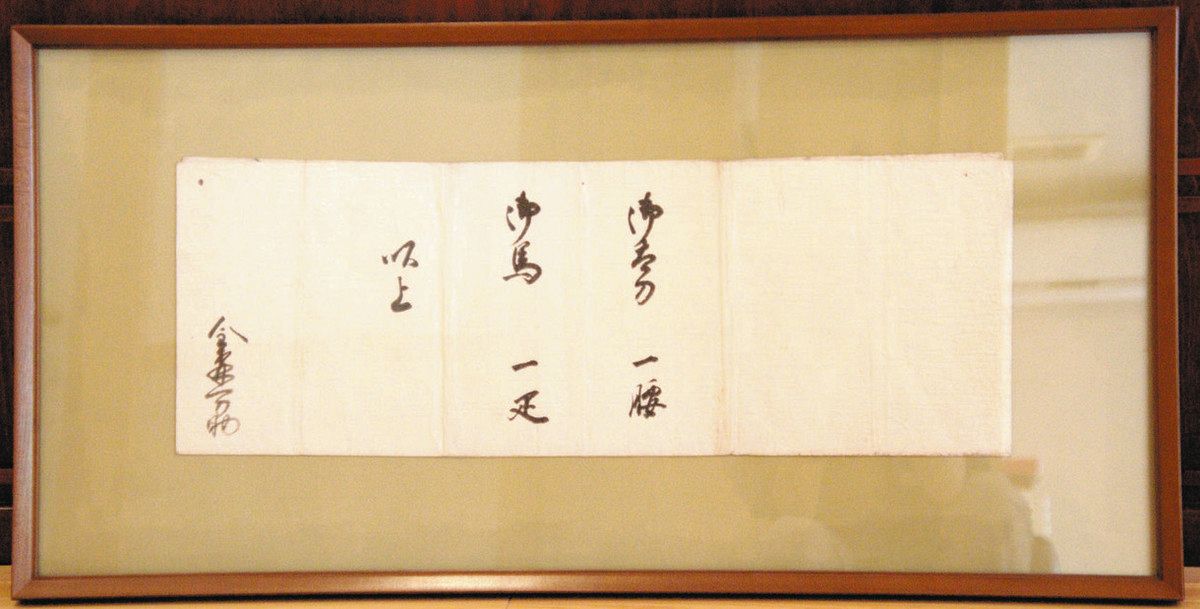 御太刀 一腰
御馬 一疋
以上
金森